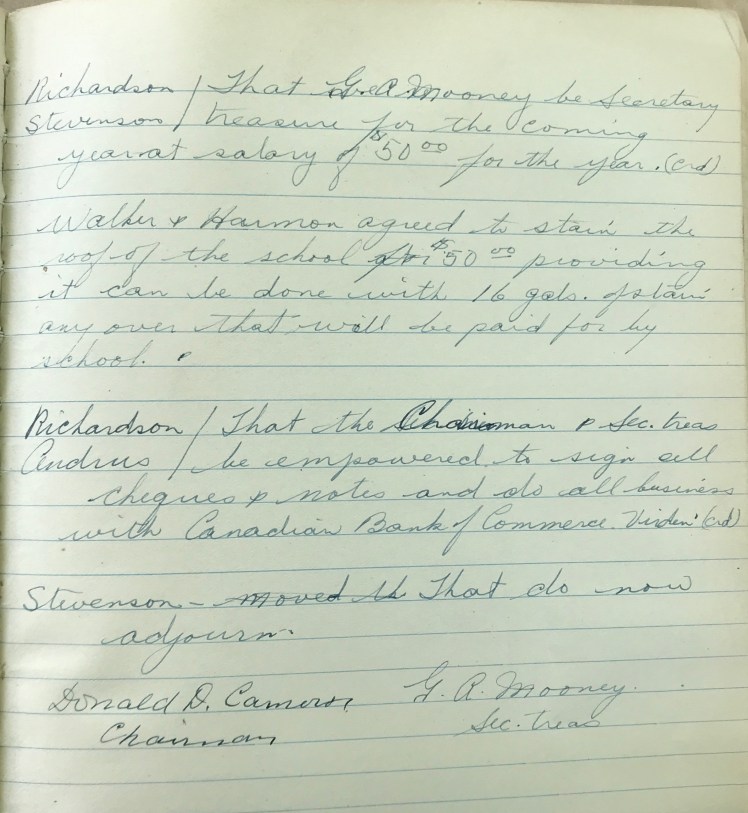 Richardson / That G. A. Mooney be Secretary
Stevenson / treasure for the coming
year at salary of $50 00 for the year. (crd)
Walker & Harmon agreed to stain the
roof of the school for $50 00 providing
it can be done with 16 gals. of stain
any over that will be paid for by
school.
Richardson / That the Chairman & Sec. treas
Andrus / be empowered to sign all
cheques & notes and do all business
with Canadian Bank of Commerce Virden (crd)
Stevenson - moved That do now
adjourn.
Donald D. Cameron G. A. Mooney.
Chairman Sec. treas